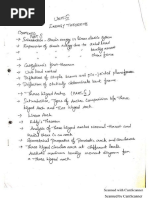 UNIT-I
ENERGY THEOREMS
Contents
Part-I
Introduction - Strain energy in linear elastic system
Expression of strain energy due to axial load
Castigliano's first theorem
Unit load method
Deflection of simple beams and pin-jointed plane frames
Deflection of statically determinate bent frames
Three Hinged Arches (PART-II)
Introduction, Types of arches comparison b/w Three
hinged Arch and Two hinged arch
Linear Arch
Eddy's Theorem
Analysis of three hinged arches normal thrust and
radial shear
Geometrical Properties of Parabolic and semi circular arch
Three Hinged circular arch at different levels
Absolute maximum bending moment diagram for
a three hinged arch
Scanned by CamScanner
Scanned with CamScanner